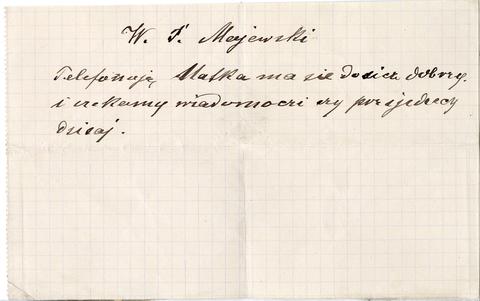 W. P. Majewski
Telefonują Matka ma sie dosicz dobrzy.
i czekamy wiadomoczi czy przyjedzcy
dzisaj.